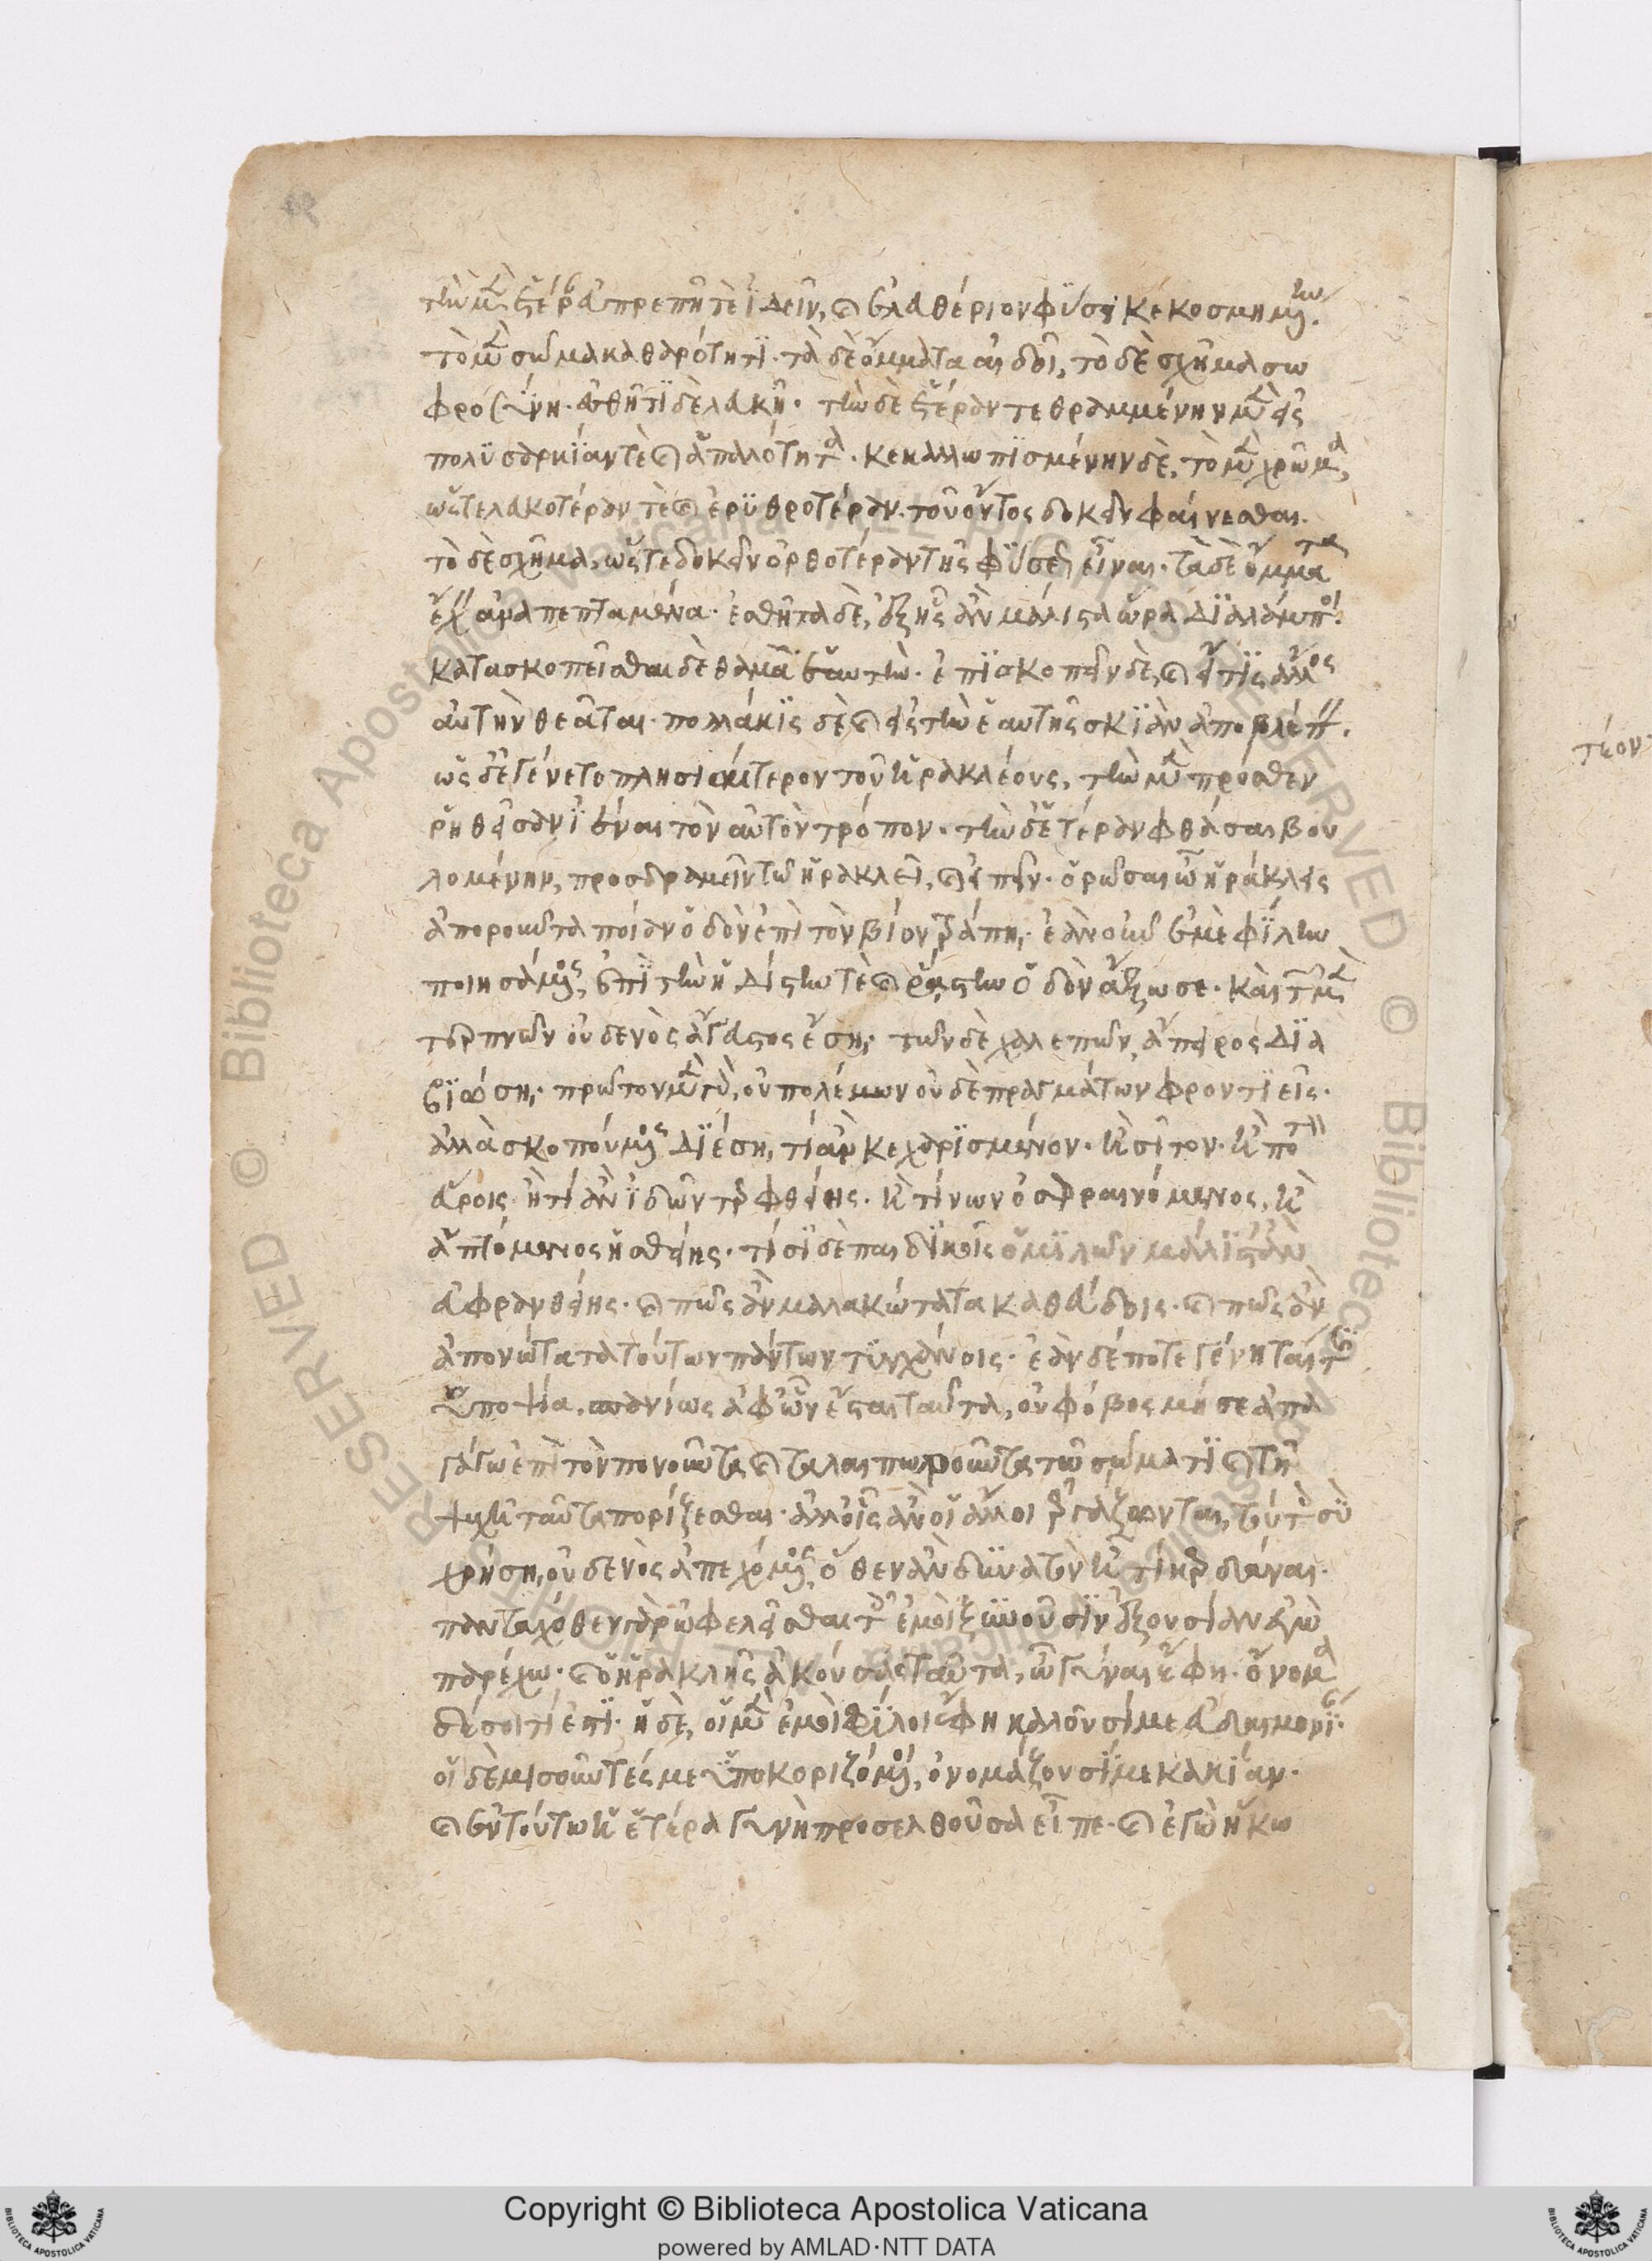 τὴν μὲν ἑτέραν εὐπρεπῆ τὲ ἰδεῖν, καὶ ἐλευθέριον φύσει κεκοσμημένην.
τὸ μὲν σῶμα καθαρότητι. τὰ δὲ ὄμματα αἰδοῖ, τὸ δὲ σχῆμα σω
φροσύνη. ἐσθῆτι δὲ λευκῆ. τὴν δὲ ἑτέραν τεθραμμένην μὲν εἰς
πολυσαρκίαν τὲ καὶ ἁπαλότητα. κεκαλλωπισμένην δὲ, τὸ μὲν χρῶμα,
ὥστε λευκοτέραν τὲ καὶ ἐρυθροτέραν. τοῦ ὄντος δοκεῖν φαίνεσθαι.
τὸ δὲ σχῆμα, ὥστε δοκεῖν ὀρθοτέραν τῆς φύσεως εἶναι. τὰ δὲ ὄμματα
ἔχειν ἀναπεπταμένα. ἐσθῆτα δὲ, ἐξ ἧς ἂν μάλιστα ὥρα διαλάμποι.
κατασκοπεῖσθαι δὲ θαμὰ ἑαυτὴν. ἐπισκοπεῖν δὲ, καὶ εἴ τις ἄλλος
αὐτὴν θεᾶται. πολλάκις δὲ καὶ εἰς τὴν ἑαυτῆς σκιὰν ἀποβλέπειν.
ὡς δ' ἐγένετο πλησιαίτερον τοῦ ἡρακλέους, τὴν μὲν πρόσθεν
ῥηθεῖσαν ἰέναι τὸν αὐτὸν τρόπον. τὴν δ' ἑτέραν φθάσαι βου
λομένην, προσδραμεῖν τῶ ἡρακλεῖ, καὶ εἰπεῖν. ὁρῶ σαι ὦ ἡράκλεις
ἀποροῦντα ποίαν ὁδὸν ἐπὶ τὸν βίον τράπη, ἐὰν οὖν ἐμὲ φίλην
ποιησάμενος, ἐπὶ τὴν ἡδίστην τὲ καὶ ῥάστην ὁδὸν ἄξω σε. καὶ τῶν μὲν
τερπνῶν οὐδενὸς ἄγευστος ἔση, τῶν δὲ χαλεπῶν, ἄπειρος δια
βιώση. πρῶτον μὲν γὰρ, οὐ πολέμων οὐδὲ πραγμάτων φροντιεῖς.
ἀλλὰ σκοπούμενος διέση, τί ἂν κεχαρισμένον. ἢ σῖτον. ἢ ποτὸν
εὕροις ἢ τί ἂν ἰδὼν τερφθείης. ἢ τίνων ὀσφραινόμενος, ἢ
ἁπτόμενος ἡσθείης. τίσι δὲ παιδικοῖς ὁμιλῶν μάλιστ' ἂν
εὐφρανθείης. καὶ πῶς ἂν μαλακώτατα καθεύδοις. καὶ πῶς ἂν
ἀπονώτατα τούτων πάντων τυγχάνοις. ἐὰν δέ ποτε γένηταί τις
ὑποψία, σπανίως ἀφ' ὧν ἔσται ταῦτα, οὐ φόβος μή σε ἀπα
γάγω ἐπὶ τὸν πονοῦντα καὶ ταλαιπωροῦντα τῶ σώματι καὶ τῆ
ψυχῆ ταῦτα πορίζεσθαι. ἀλλ' οἷς ἂν οἱ ἄλλοι ἐργάζωνται, τούτοις σὺ
χρήση, οὐδενὸς ἀπεχόμενος, ὅθεν ἂν δυνατὸν ἦ τί κερδάναι.
πανταχόθεν γὰρ ὠφελεῖσθαι τοῖς ἐμοὶ ξυνοῦσιν ἐξουσίαν ἐγὼ
παρέχω. καὶ ὁ ἡρακλῆς ἀκούσας ταῦτα, ὦ γύναι ἔφη. ὄνομα
δέ σοι τί ἐστὶ. ἡ δὲ, οἱ μὲν ἐμοὶ φίλοι ἔφη καλοῦσί με εὐδαιμονίαν.
οἱ δὲ μισοῦντές με ὑποκοριζόμενοι, ὀνομάζουσί με κακίαν.
καὶ ἐν τούτω ἡ ἑτέρα γυνὴ προσελθοῦσα εἶπε. καὶ ἐγὼ ἥκω